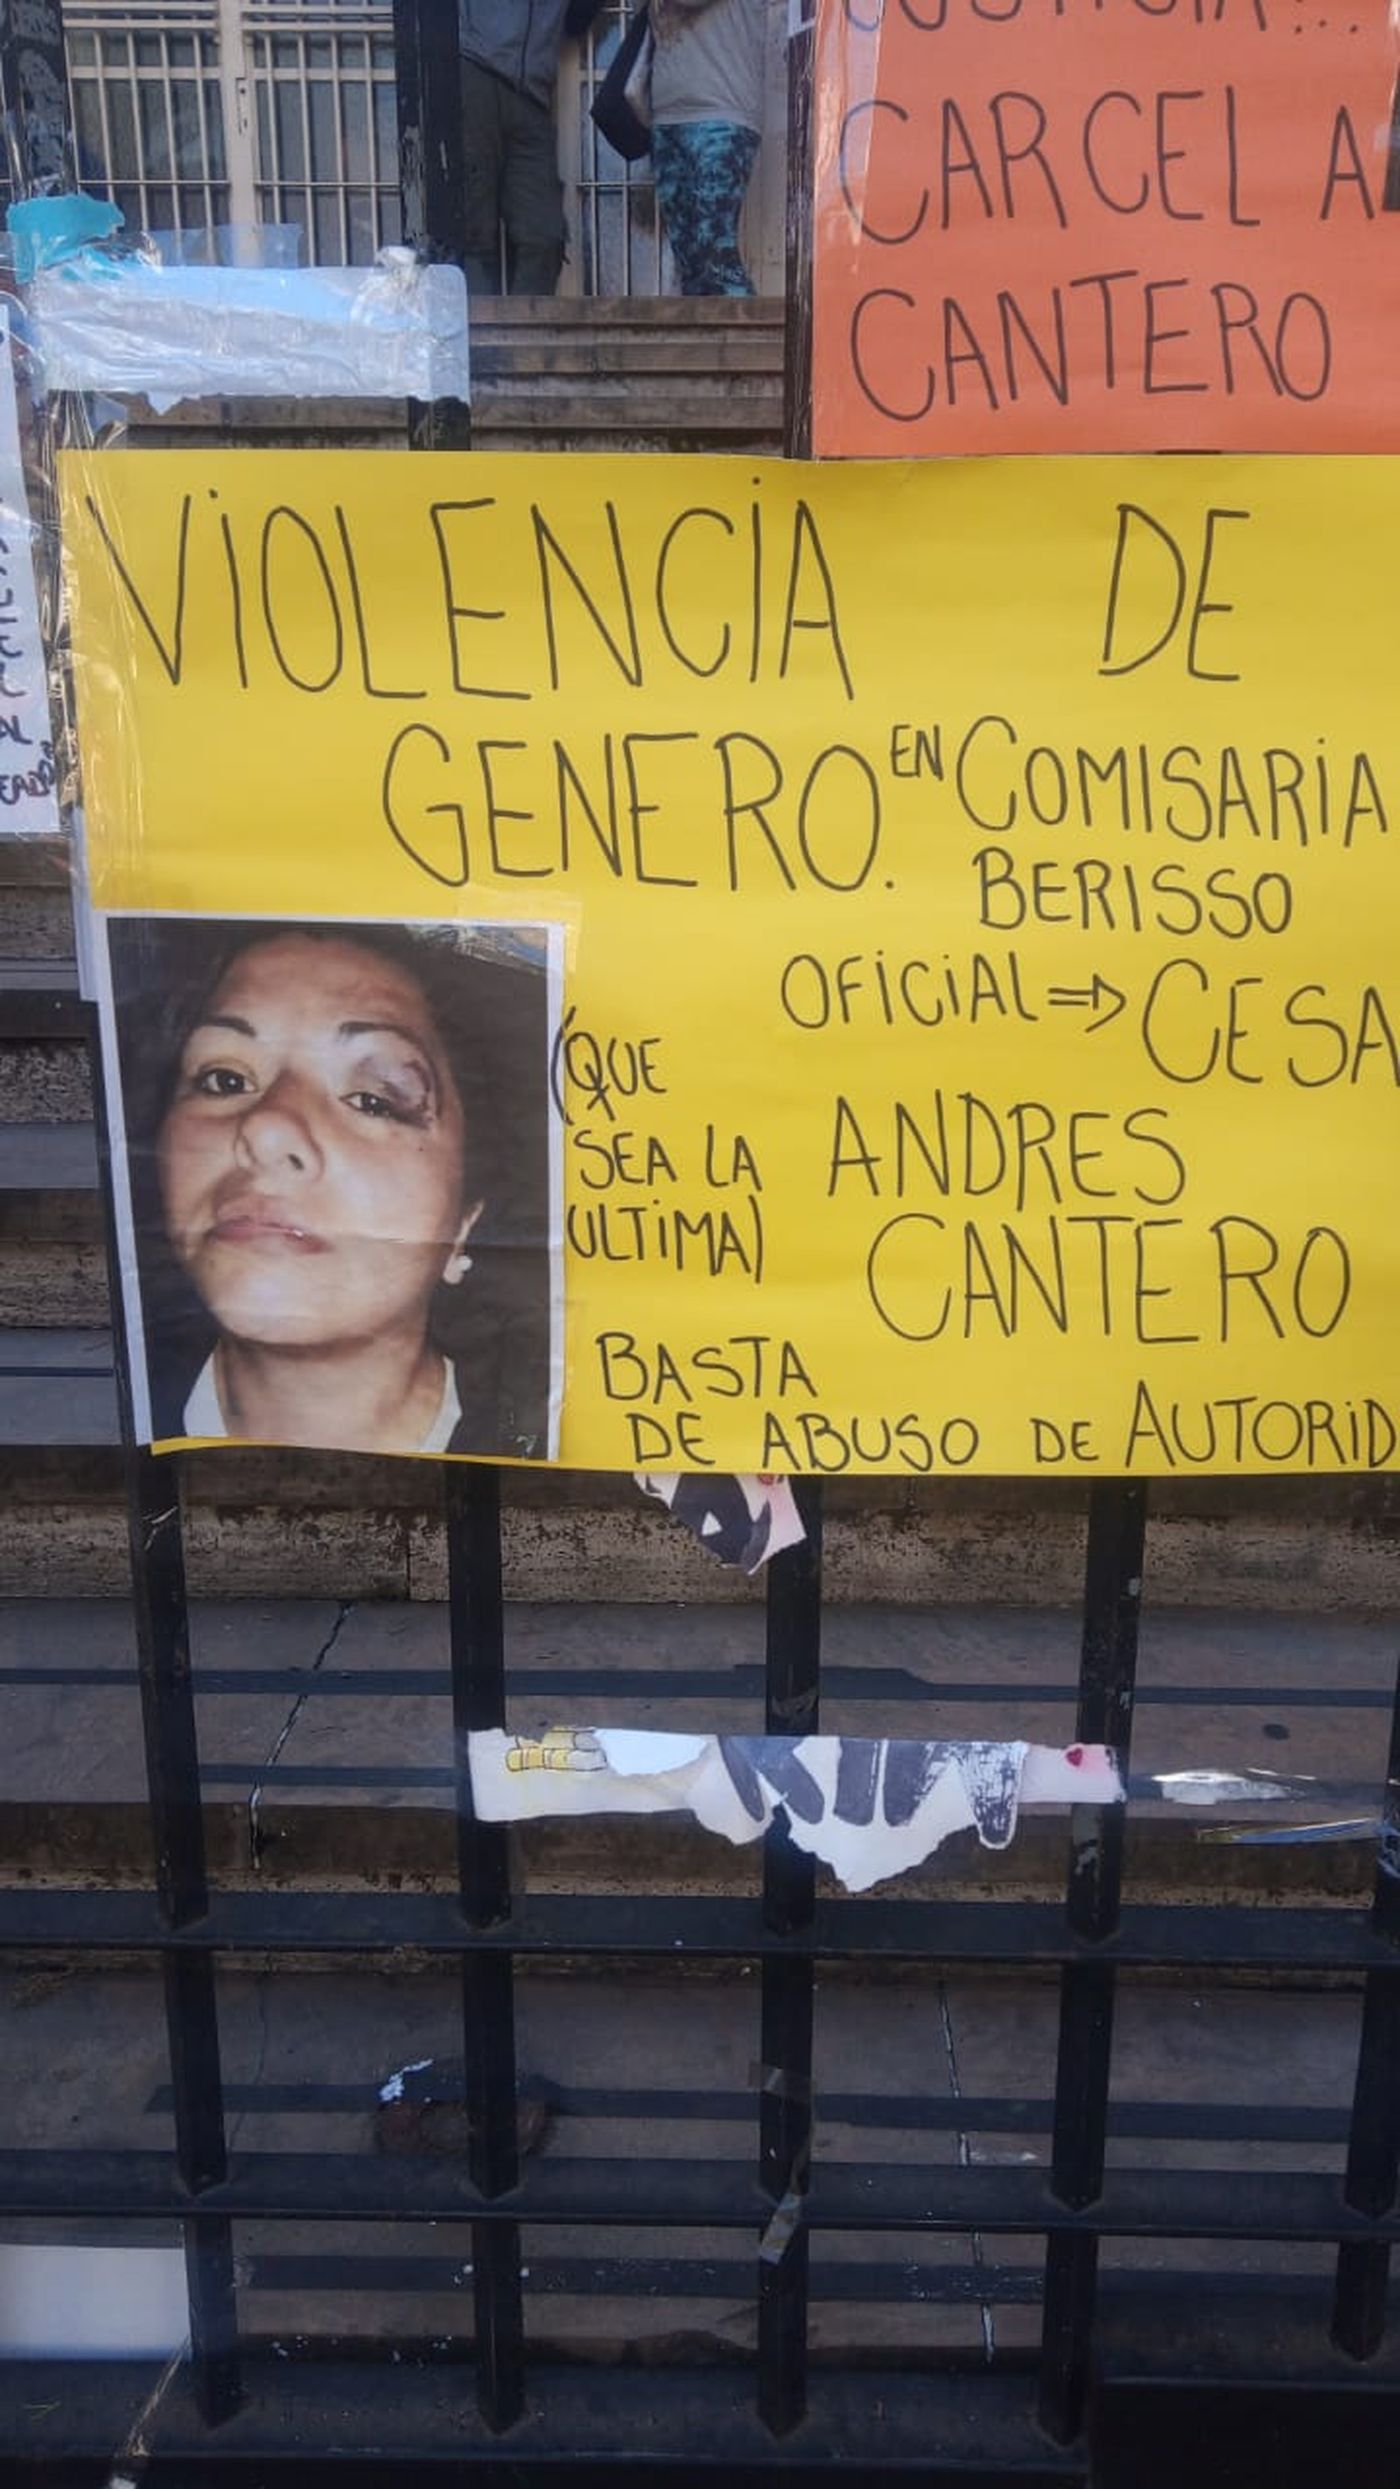 CARCEL A
CANTERO
VIOLENCIA DE
GENERO. EN COMISARIA
BERISSO
OFICIAL ⇒ CESA
ANDRES
CANTERO
(QUE
SEA LA
ULTIMA)
BASTA
DE ABUSO DE AUTORID